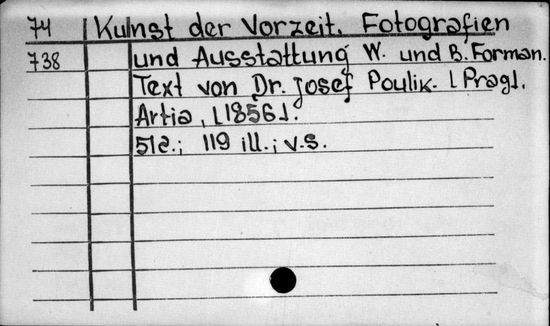 74 Kunst der Vorzeit. Fotografien
738 und Ausstattung W. und B. Forman.
Text von Dr. Josef Poulik. [Prag].
Artia, [1856].
51 c.; 119 ill.; v.s.